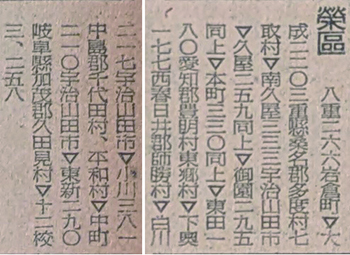 榮區
八重二六六岩倉町▽大
成二二〇三重縣桑名郡多度村七
取村▽南久屋三三三宇治山田市
▽久屋二五九同上▽御園二九五
同上▽本町三三〇同上▽東田一
八〇愛知郡豊明村東郷村▽下奥
一七七西春日井郡師勝村▽白川
二一七宇治山田市▽小川三八一
中島郡千代田村、平和村▽中町
二一〇宇治山田市▽東新二九〇
岐阜縣加茂郡久田見村▽十二校
三、二五八